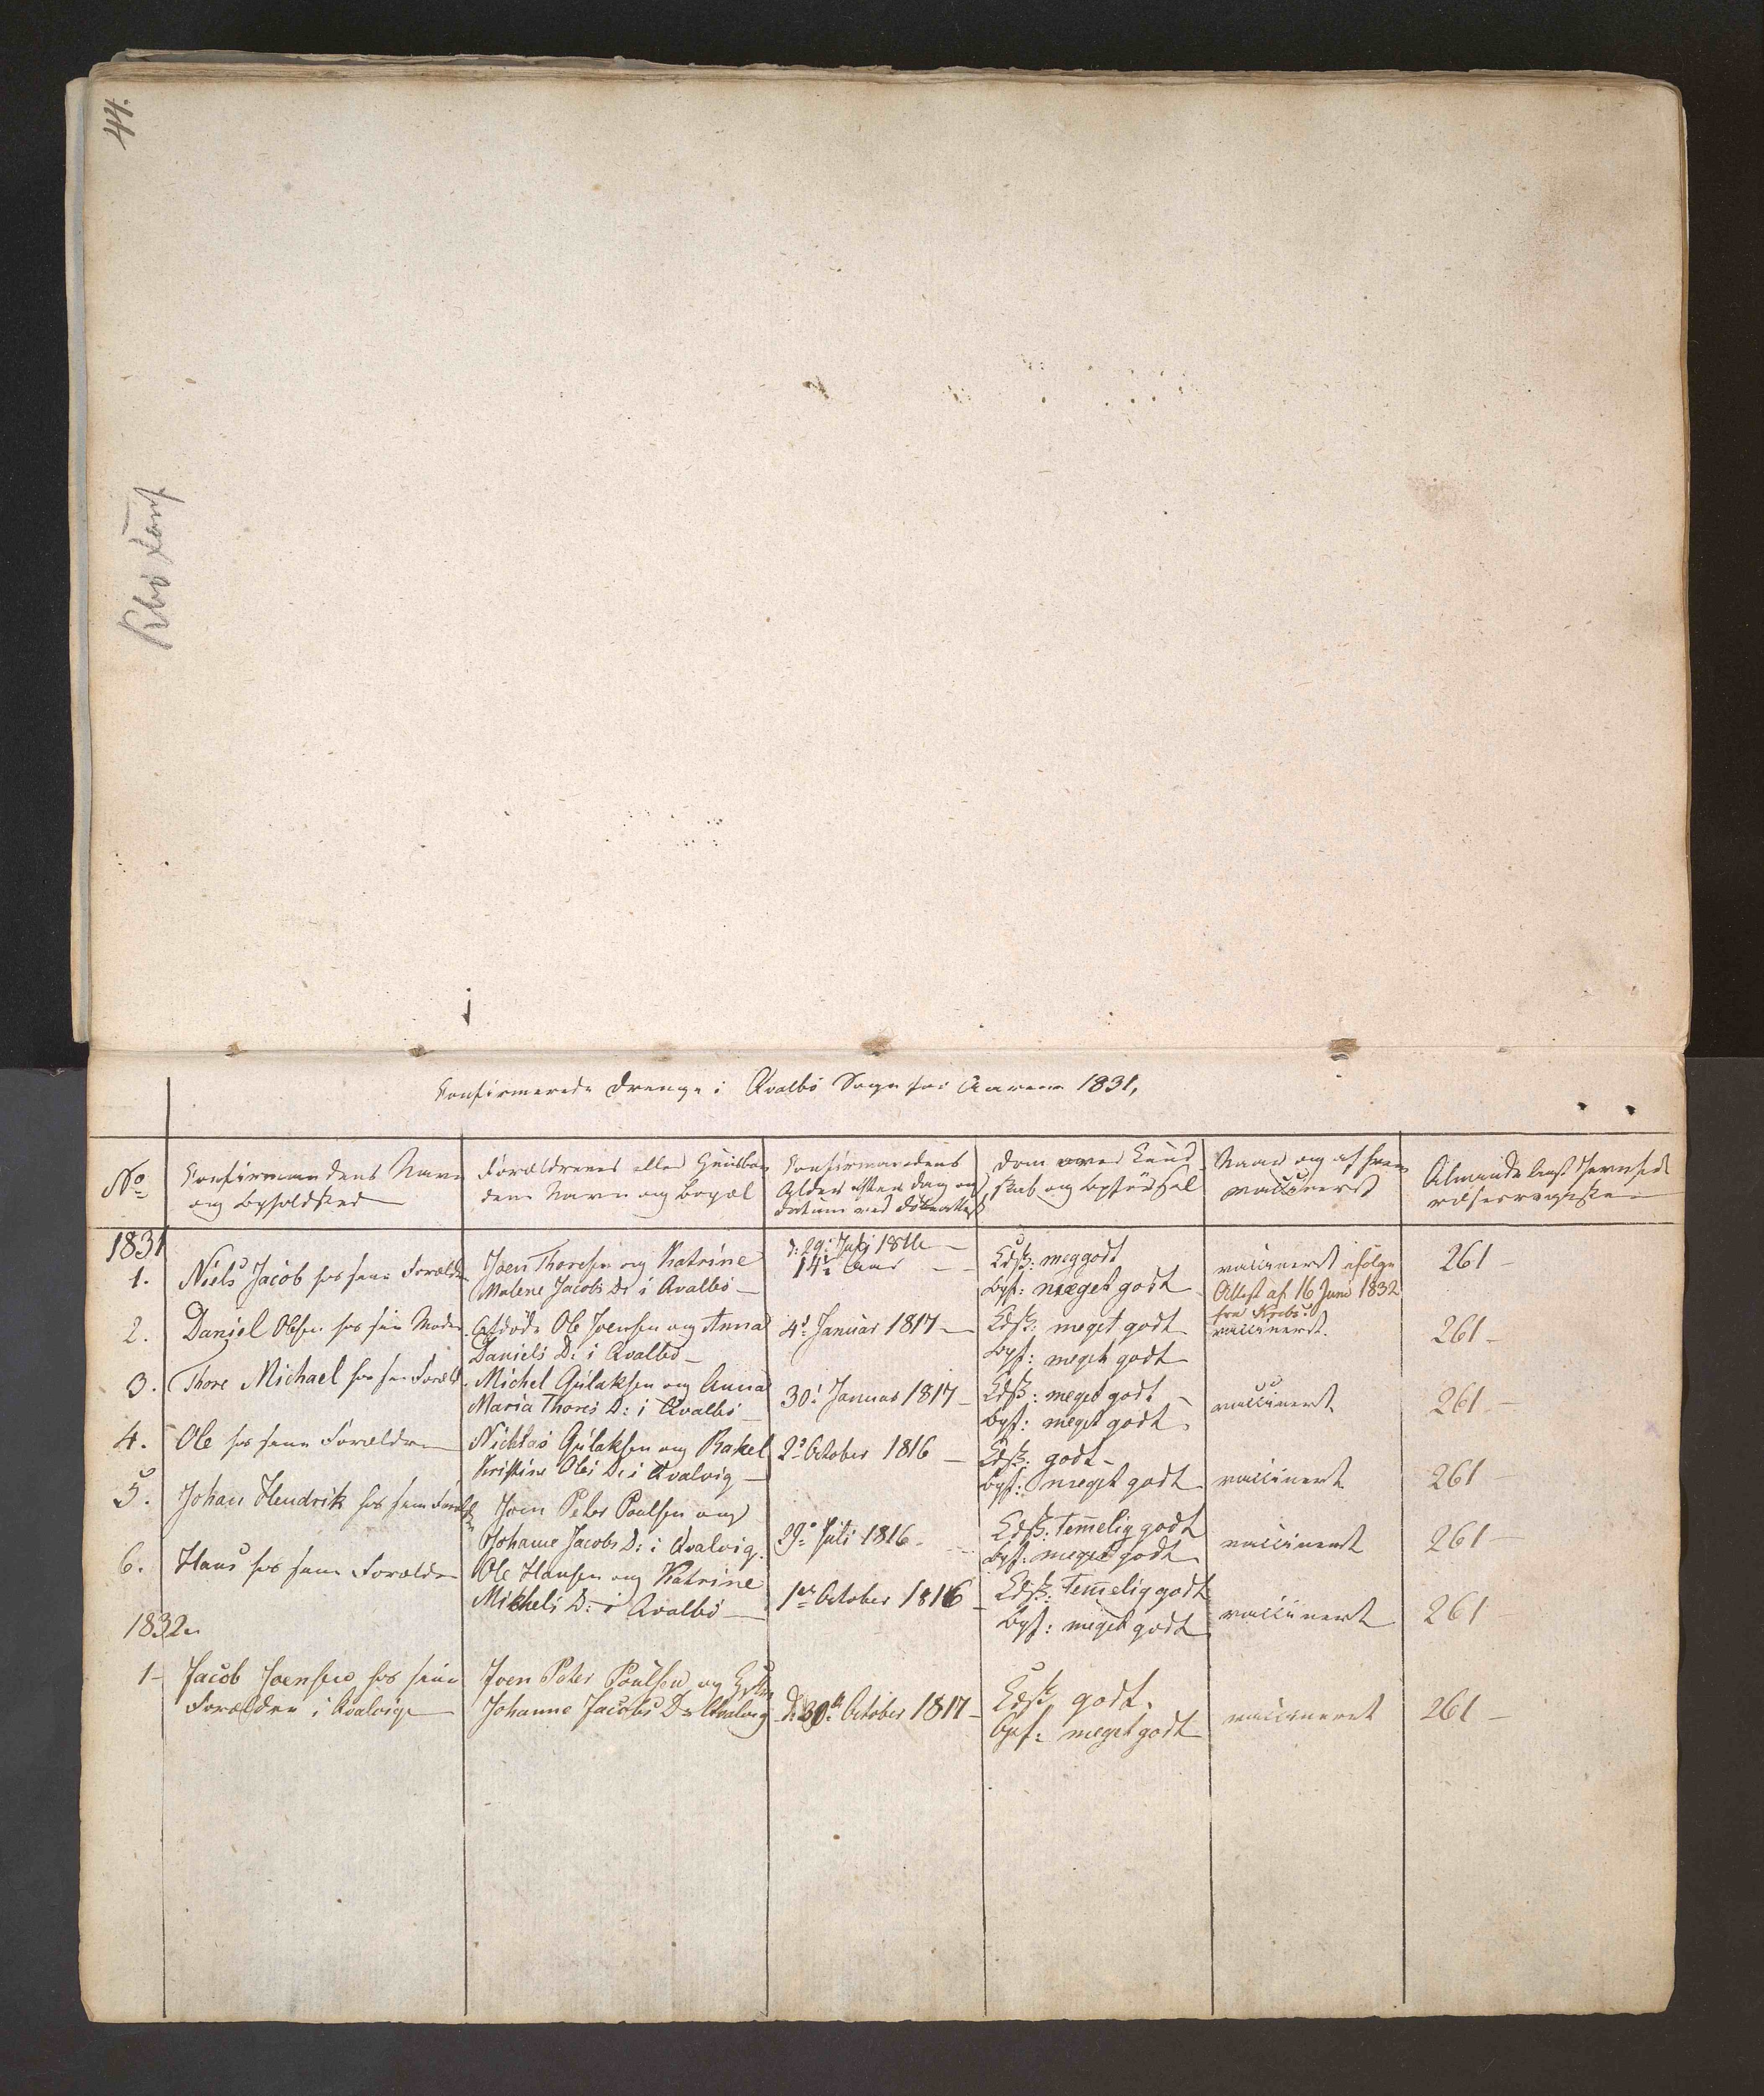 44.
Confirmerede Drenge i Qvalbö Sogn for Aarene 1831,
No
Confirmandens Navn
og Opholdsted
Forældrenes eller Huusbon
dens Navn og Bopæl
Confirmandens
Alder efter dag og
datum ved döbeattest
Dom over Kund
skab og Opförsel
Naar og af hvem
vaccineret
Almindeligt Jevnfö
relsesregister
1831
1.
Niels Jacob hos sine Forældre
Joen Thoresen og Katrine
Malene Jacobs D: i Qvalböe
d: 29: Juli 1816
14 Aar
Kdsk: meg godt
Opf: meget godt
vaccineret ifölge
Attest af 16 Juni 1832
fra Krebs.
261
2.
Daniel Olsen hos sin Moder
Afdöde Ole Joensen og Anna
Daniels D: i Qvalbö
4d Januar 1817
Kdsk: meget godt
Opf: meget godt
vaccineret.
261
3.
Thore Michael hos sine Foræld
Michel Gulaksen og Anna
Maria Thores D: i Qvalbö
30: Januar 1817
Kdsk: meget godt
Opf: meget godt
vaccineret
261
4.
Ole hos sine Forældre
Nichlas Gulaksen og Rakel
Kristine Oles D: i Qvalvig
2: October 1816
Kdsk: godt
Opf: meget godt
vaccineret
261
5.
Johan Hendrik hos sine Foræld
Joen Peter Poulsen og
Johanne Jacobs D: i Qvalvig.
29: Juli 1816.
Kdsk: Temelig godt
Opf: meget godt
vaccineret
261
6.
Hans hos sine Forældre
Ole Hansen og Katrine
Mikkels D: i Qvalbö
1ste October 1816
Kdsk: Temelig godt
Opf: meget godt
vaccineret
261
1832
1
Jacob Joensen hos sine
Forældre i Qvalvig
Joen Peter Poulsen og Hustru
Johanne Jacobs D: Qvalvig
D: 30te October 1817
Kdsk: godt.
Opf: meget godt
vaccineret
261